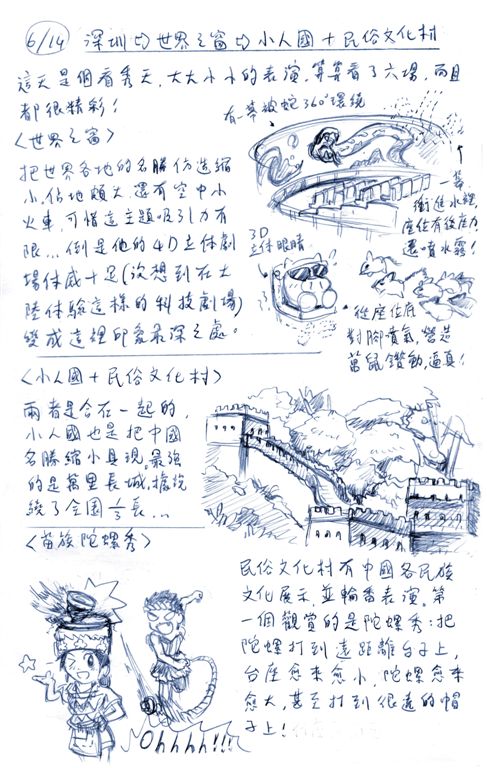 6/14 深圳⇨世界之窗⇨小人國+民俗文化村
這天是個看秀天,大大小小的表演,算算看了六場,而且
都很精彩!
有一幕被蛇360°環繞
<世界之窗>
把世界各地的名勝仿造縮
小,佔地頗大,還有空中小
火車,可惜這主題吸引力有
限...倒是他的4D立体劇
場体感十足(沒想到在大
陸体驗這樣的科技劇場)
變成這裡印象最深之處。
一幕
衝進水裡,
座位有後座力
還噴水霧!
3D
立体眼睛
從座位底
對腳噴氣,營造
萬鼠鑽動,逼真!
<小人國+民俗文化村>
兩者是合在一起的,
小人國也是把中國
名勝縮小具現。最強
的是萬里長城,據說
繞了全園1/3長...
<苗族陀螺秀>
民俗文化村有中國各民族
文化展示,並輪番表演。第
一個觀賞的是陀螺秀:把
陀螺打到遠距離台子上,
台座愈來愈小,陀螺愈來
愈大,甚至打到很遠的帽
子上!
Ohhhh!!!